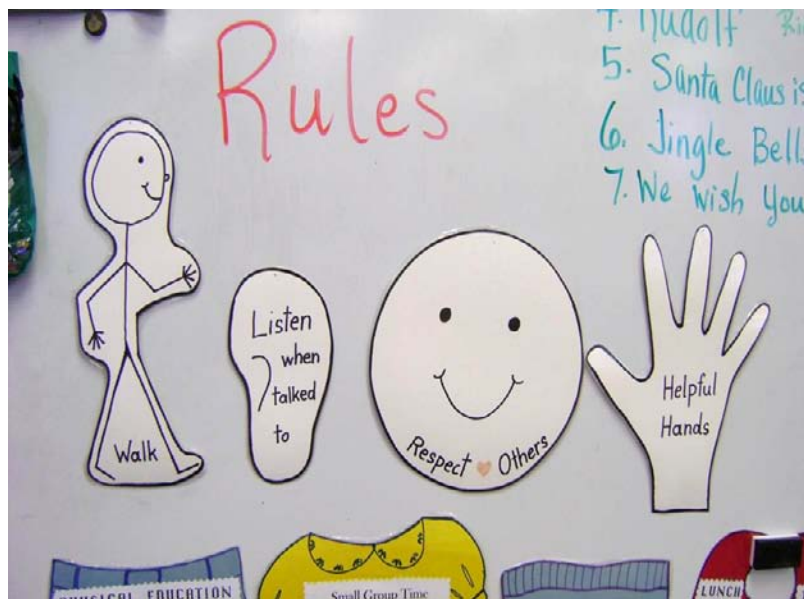 Rules
4. Rudolf
5. Santa Claus is
6. Jingle Bells
7. We wish You
Walk
Listen
when
talked
to
Respect Others
Helpful
Hands
PHYSICAL EDUCATION
Small Group Time
LUNCH